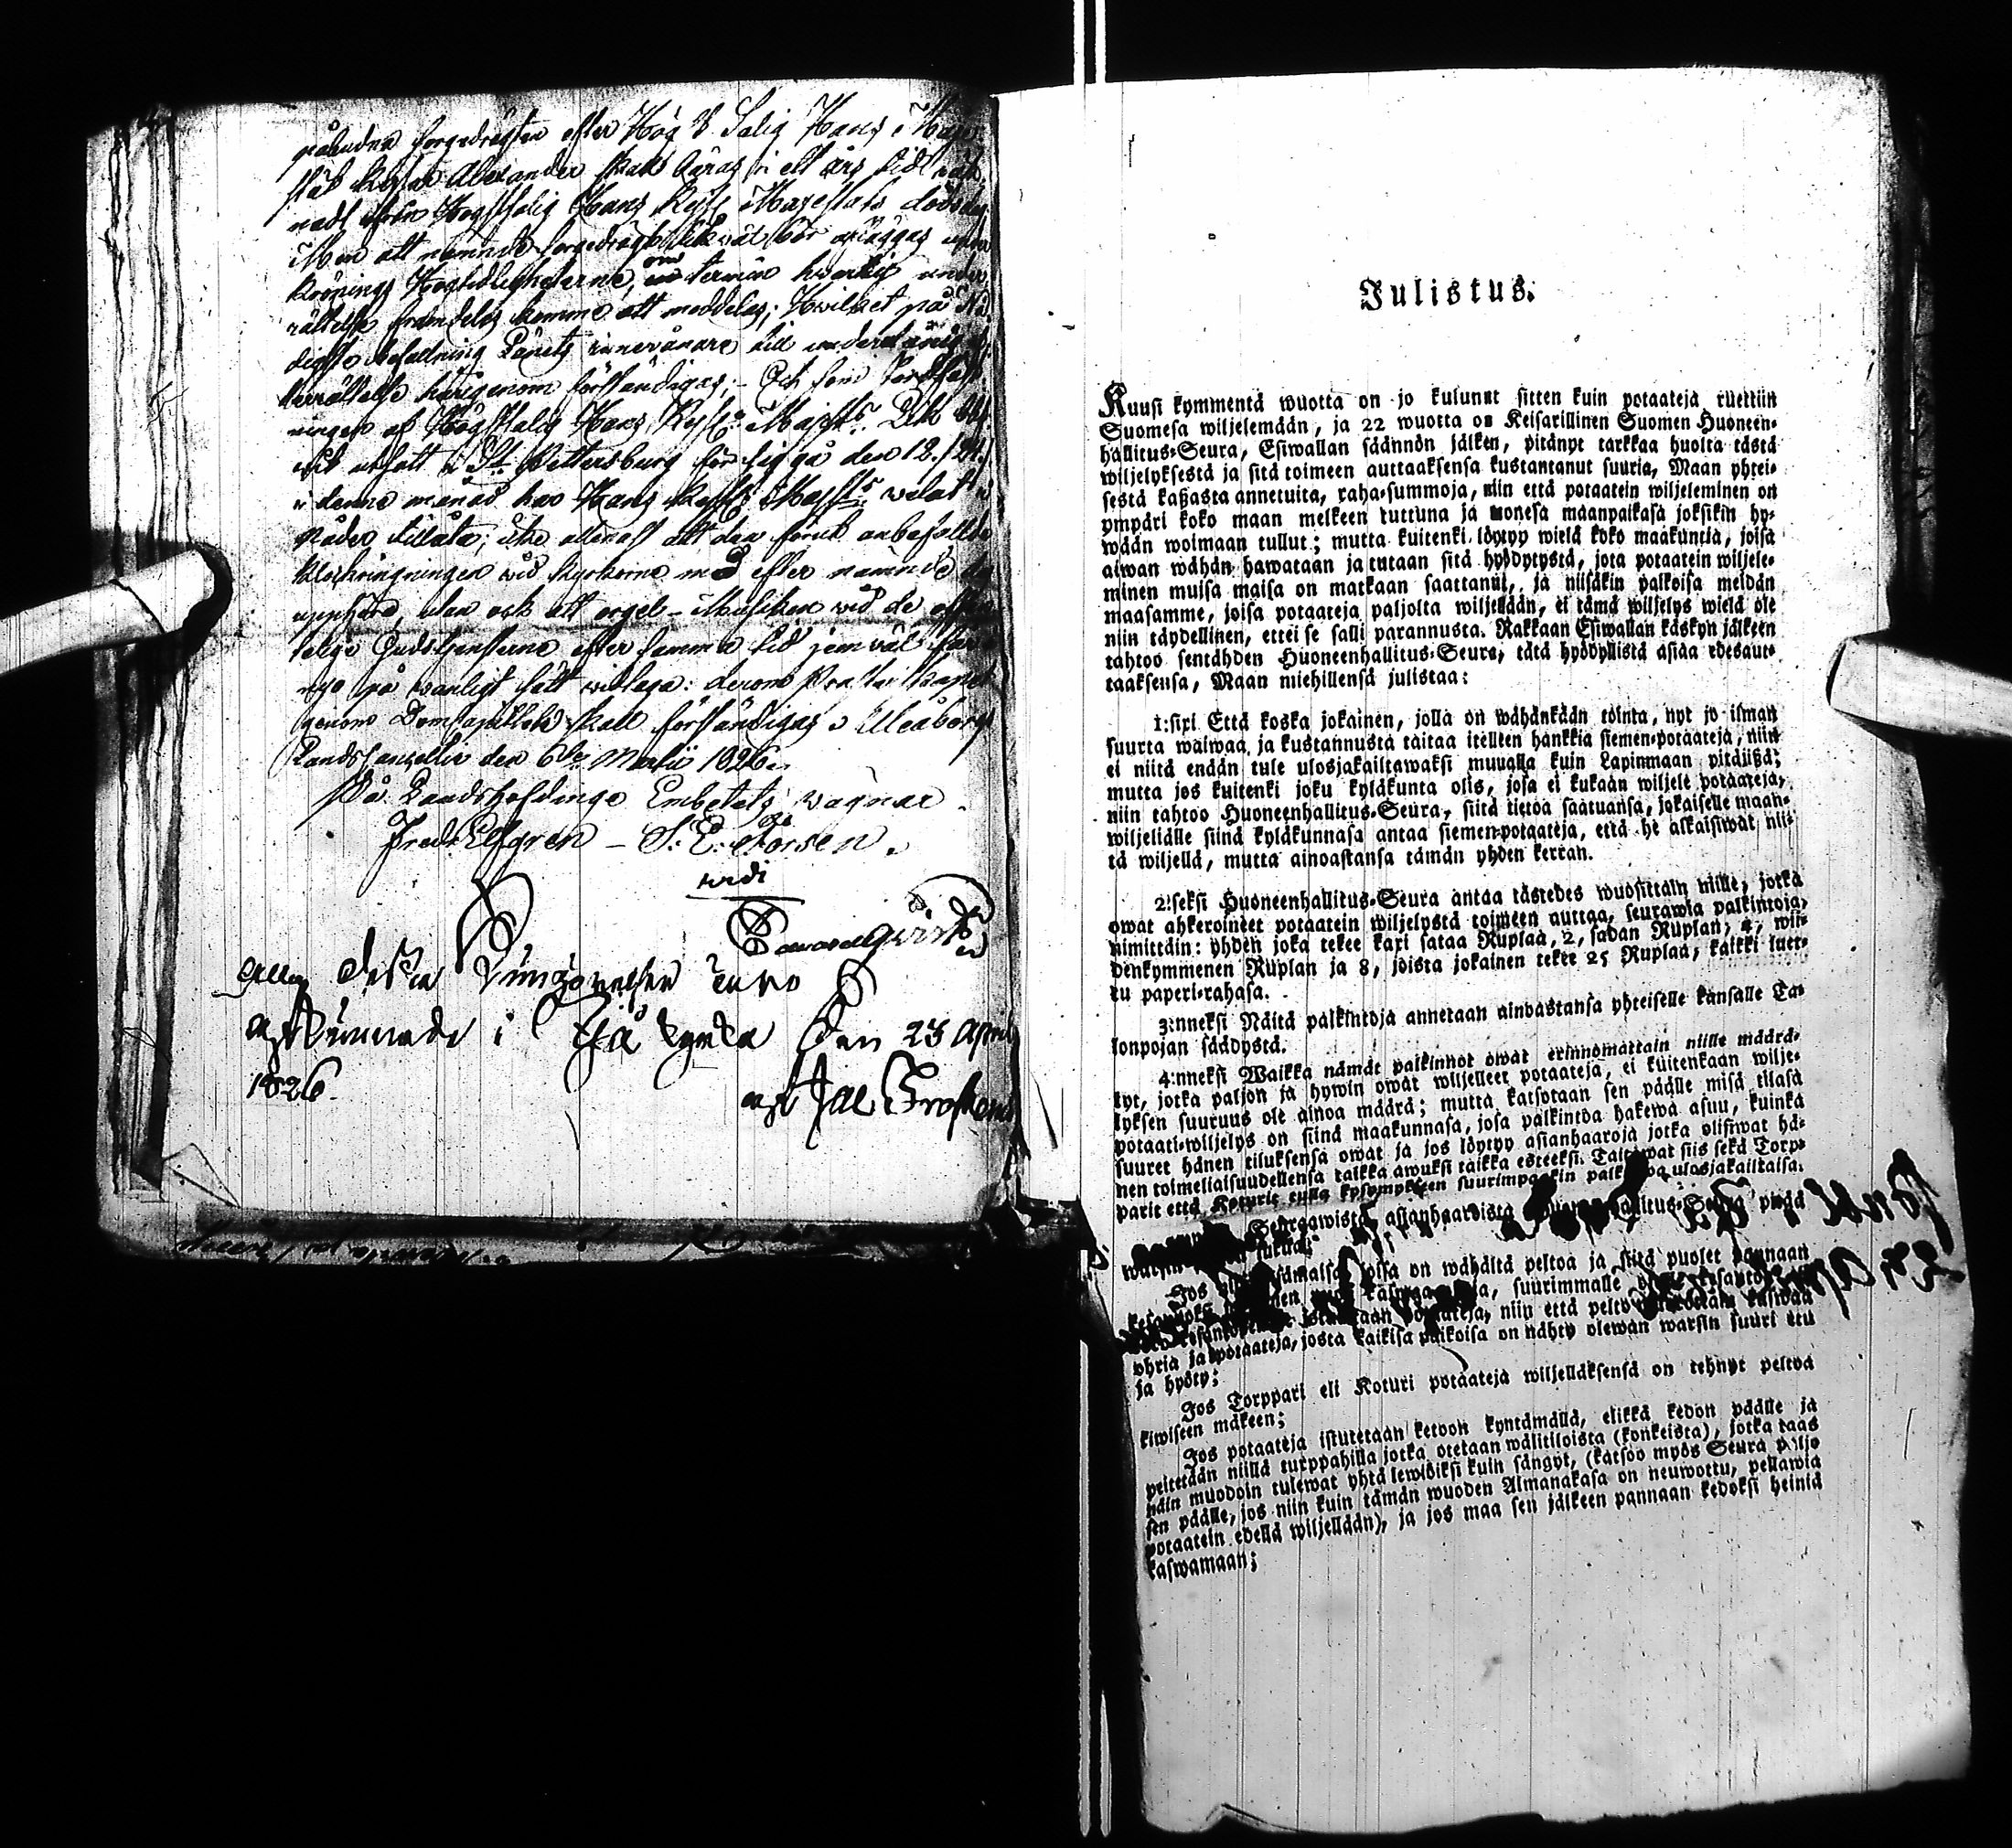 påbudna sorgedrägten efter Hög S. Salig Hans Maje-
stät Kejsar Alexander skall bäras i ett års tid räk-
nadt ifrån Högstsalig Hans Kejs. Majestäts dödsdag
Men att nämnde sorgedrägt likväl bör afläggas under
Krönings Högtidligheterne, om termin hvartill under-
rättelse framdeles kommer att meddelas; Hvilket på Nå-
digste befallning Länets innevånare till underdånig
underrättelse härigenom förständigas; Och som Jordfäst-
ningen af Högstsalig Hans Kejs. Majsts. Lik
uti St. Pettersburg för sig gå den 12./24.
i denne månad har Hans Kejs. Majst. velat i
Nåder tillåta, icke allenast att den förut anbefallde
klockringningen vid kyrkorne må efter nämnde dag
upphöra, utan ock att orgel-Musiken vid de offent-
telige Gudstjensterne efter samma tid jemväl får
på vanligt sätt vidtaga: derom Presterskapet
genom Domcapitlet skall förständigas. Uleåborgs
Landscansellie den 6te Martii 1826.
På Landshöfdinge Embetets vägnar.
Fredr Elfgren – S. E. Forsen.
vidi
Alla dessa Kungörelser äro
afkunnade i kyrka den 23 April
1826.
Julistus.
Kuusi kymmentä wuotta on jo kulunut sitten kuin potaateja ruettiin
Suomesa wiljelemään, ja 22 wuotta on Keisarillinen Suomen Huoneen-
hallitus-Seura, Esiwallan säännön jälken, pitänyt tarkkaa huolta tästä
wiljelyksestä ja sitä toimeen auttaaksensa kustantanut suuria, Maan yhtei-
sestä kaßasta annetuita, raha-summoja, niin että potaatein wiljeleminen on
ympäri koko maan melkeen tuttuna ja monesa maanpaikasa joksikin hy-
wään woimaan tullut; mutta kuitenki löytyy wielä koko maakuntia, joisa
aiwan wähän hawataan ja tutaan sitä hyödytystä, jota potaatein wiljele-
minen muisa maisa on matkaan saattanut, ja niisäkin paikoisa meidän
maasamme, joisa potaateja paljolta wiljellään, ei tämä wiljelys wielä ole
niin täydellinen, ettei se salli parannusta. Rakkaan Esiwallan käskyn jälkeen
tahtoo sentähden Huoneenhallitus-Seura, tätä hyödyllistä asiaa edesaut-
taaksensa, Maan miehillensä julistaa:
1:sixi Että koska jokainen, jolla on wähänkään tointa, nyt jo ilman
suurta waiwaa ja kustannusta taitaa itelleen hankkia siemen-potaateja, niin
ei niitä enään tule ulosjakailtawaksi muualla kuin Lapinmaan pitäjißä;
mutta jos kuitenki joku kyläkunta olis, josa ei kukaan wiljele potaateja,
niin tahtoo Huoneenhallitus-Seura, siitä tietoa saatuansa, jokaiselle maan-
wiljeliälle siinä kyläkunnasa antaa siemen-potaateja, että he alkaisiwat nii-
tä wiljellä, mutta ainoastansa tämän yhden kerran.
2:seksi Huoneenhallitus-Seura antaa tästedes wuosittain niille, jotka
owat ahkeroineet potaatein wiljelystä toimeen auttaa, seurawia palkintoja,
nimittäin: yhden joka tekee kaxi sataa Ruplaa, 2, sadan Ruplan, 4, wii-
denkymmenen Ruplan ja 8, joista jokainen tekee 25 Ruplaa, kaikki luet-
tu paperi-rahasa.
3:nneksi Näitä palkintoja annetaan ainoastansa yhteiselle kansalle Ta-
lonpojan säädystä.
4:nneksi Waikka nämät palkinnot owat erinnomattain niille määrä-
tyt, jotka paljon ja hywin owat wiljelleet potaateja, ei kuitenkaan wilje-
lyksen suuruus ole ainoa määrä; mutta katsotaan sen päälle misä tilasa
potaati-wiljelys on siinä maakunnasa, josa palkintoa hakewa asuu, kuinka
suuret hänen tiluksensa owat ja jos löytyy asianhaaroja jotka olisiwat hä-
nen toimeliaisuudellensa taikka awuksi taikka esteeksi. Taitawat siis sekä Torp-
parit että Koturit tulla kysymykseen suurimpaakin ulosjakailtaisa.
Seuraawista asianhaaroista Huoneenhallitus-Seura pitää
warsin
Jos joisa on wähältä peltoa ja siitä puolet pannaan
suurimmalle
potaateja, niin että pelto kaswaa
ohria ja potaateja, josta kaikisa paikoisa on nähty olewan warsin suuri etu
ja hyöty;
Jos Torppari eli Koturi potaateja wiljelläksensä on tehnyt peltoa
kiwiseen mäkeen;
Jos potaateja istutetaan ketoon kyntämällä, elikkä kedon päälle ja
peitetään niillä turppahilla jotka otetaan wälitiloista (konkeista), jotka taas
näin muodoin tulewat yhtä lewiöiksi kuin sängyt, (katsoo myös Seura paljo
sen päälle, jos niin kuin tämän wuoden Almanakasa on neuwottu, pellawia
potaatein edellä wiljellään), ja jos maa sen jälkeen pannaan kedoksi heiniä
kaswamaan;